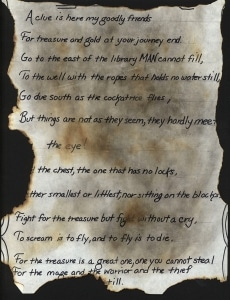 A clue is here my goodly friends
For treasure and gold at your journey end.
Go to the east of the library MAN cannot fill,
To the well with the ropes that holds no water still,
Go due south as the cockatrice flies,
But things are not as they seem, they hardly meet
the eye
the chest, the one that has no locks,
ther smallest or littlest, nor sitting on the blocks
Fight for the treasure but fight without a cry.
To scream is to fly, and to fly is to die.
For the treasure is a great one, one you cannot steal
For the mage and the warrior and the thief
till.